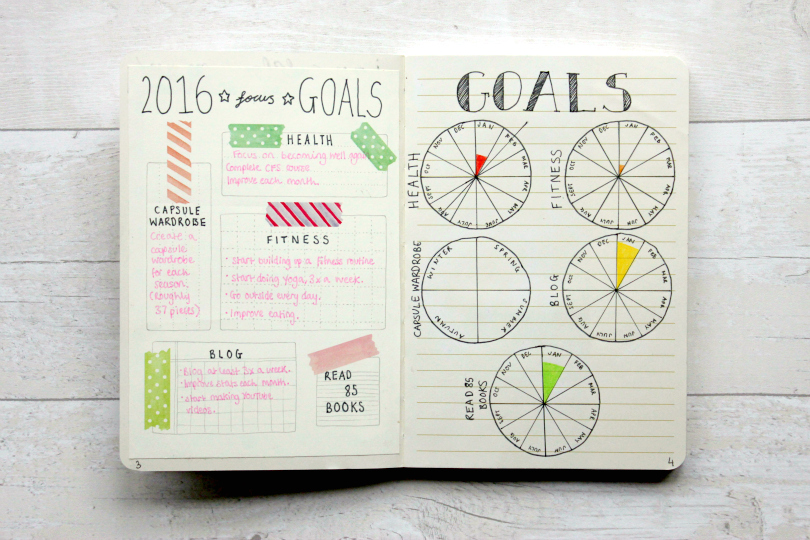 2016 ☆ focus ☆ GOALS
HEALTH
Focus on becoming well again
Complete CFS course
Improve each month.
CAPSULE
WARDROBE
Create a
capsule
wardrobe
for each
season.
(roughly
37 pieces)
FITNESS
· Start building up a fitness routine
· Start doing yoga, 3x a week.
· Go outside every day.
· Improve eating.
BLOG
· Blog at least 2x a week.
· Improve stats each month.
· Start making YouTube
videos.
READ
85
BOOKS
3
GOALS
HEALTH
JAN
FEB
MAR
APR
MAY
JUNE
JULY
AUG
SEPT
OCT
NOV
DEC
FITNESS
JAN
FEB
MAR
APR
MAY
JUN
JULY
AUG
SEPT
OCT
NOV
DEC
CAPSULE WARDROBE
WINTER
SPRING
SUMMER
AUTUMN
BLOG
JAN
FEB
MAR
APR
MAY
JUN
JULY
AUG
SEPT
OCT
NOV
DEC
READ 85
BOOKS
JAN
FEB
MAR
APR
MAY
JUN
JULY
AUG
SEPT
OCT
NOV
DEC
4